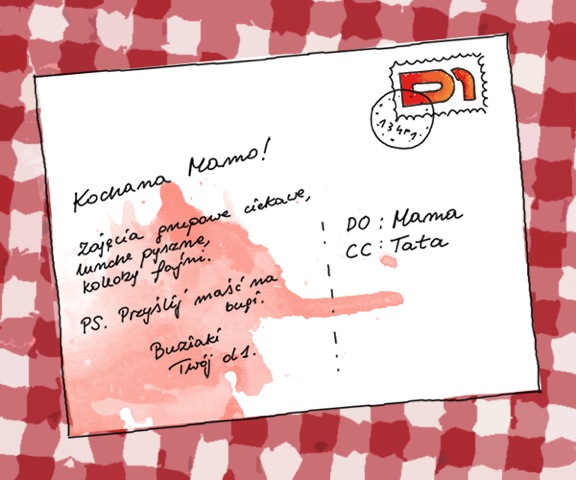 D1
1341
Kochana Mamo!
Zajęcia grupowe ciekawe,
lunche pyszne,
koledzy fajni.
PS. Przyślij maść na
bugi.
Buziaki
Twój d1.
DO : Mama
CC : Tata